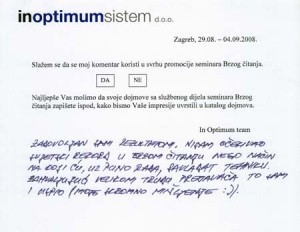 inoptimumsistem d.o.o.
Zagreb, 29.08. – 04.09.2008.
Slažem se da se moj komentar koristi u svrhu promocije seminara Brzog čitanja.
DA NE
Najljepše Vas molimo da svoje dojmove sa službenog dijela seminara Brzog
čitanja zapišete ispod, kako bismo Vaše impresije uvrstili u katalog dojmova.
In Optimum team
ZADOVOLJAN SAM REZULTATOM. NISAM OČEKIVAO
SVJETSKI REKORD U BRZOM ČITANJU NEGO NAČIN
NA KOJI ĆU, UZ PUNO RADA, SAVLADAT TEHNIKU.
ZAHVALJUJUĆI VELIKOM TRUDU PREDAVAČA TO SAM
I USPIO (MOJE SKROMNO MIŠLJENJE :).)